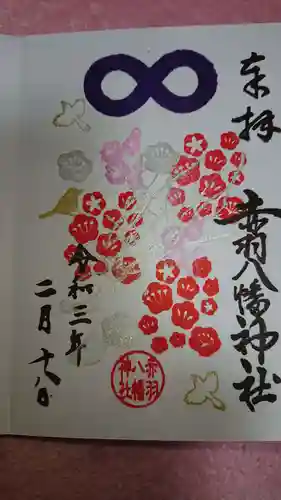 奉拝
赤羽八幡神社
令和三年
二月十八日
赤羽
八幡
神社